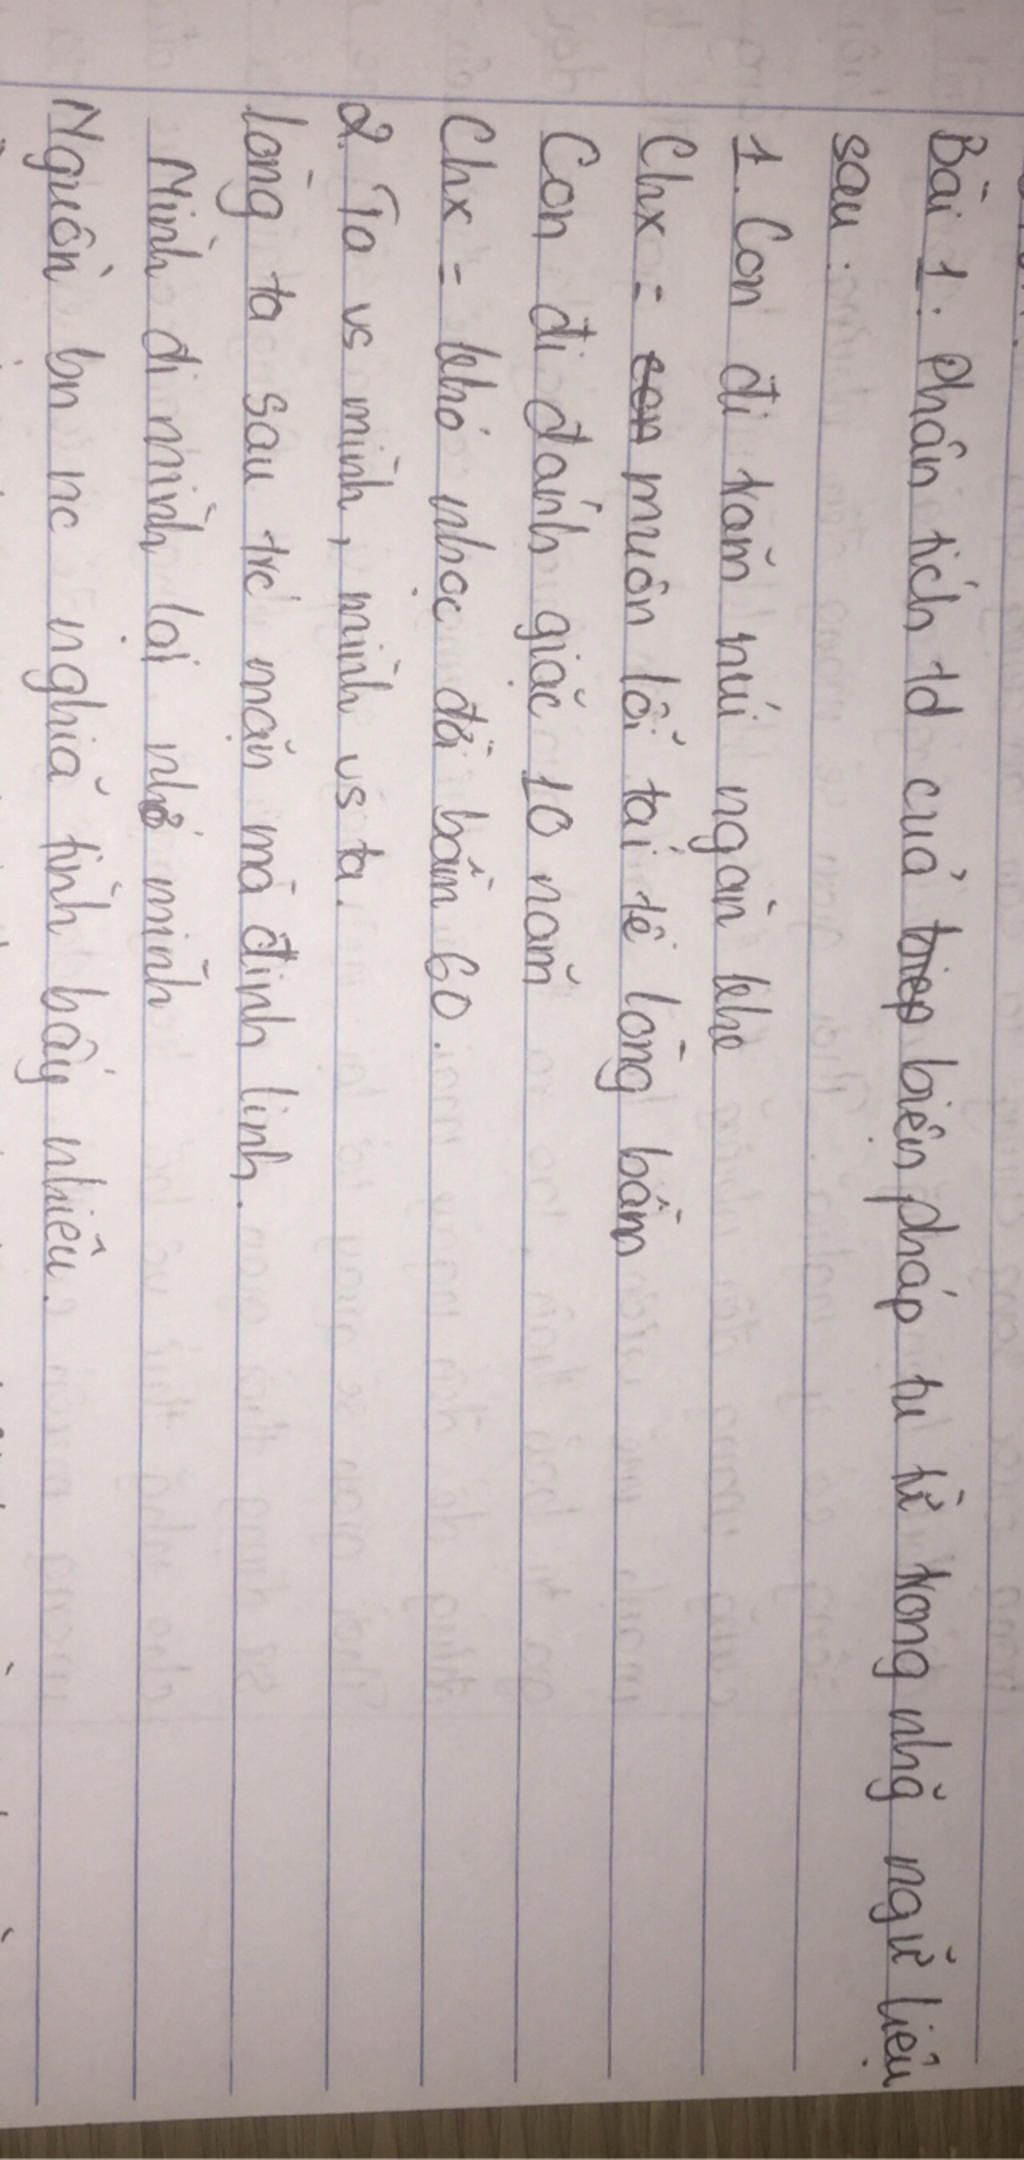 Bài 1. Phân tích td của biện pháp tu từ trong nhg ngữ liệu
sau:
1. Con đi trăm núi ngàn khe
Chx = muôn lỗi tái tê lòng bầm
Con đi đánh giặc 10 năm
Chx = khó nhọc đời bầm 60.
2. Ta vs mình, mình vs ta.
lòng ta sau trc mặn mà đinh linh.
Mình đi mình lại nhớ mình
Nguồn bn nc nghĩa tình bấy nhiêu.